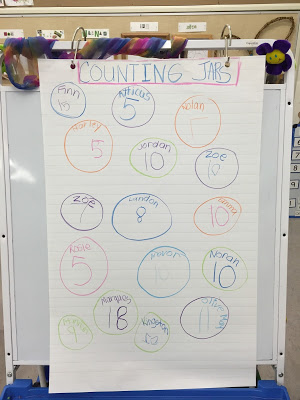 COUNTING JARS
Finn
10
Atticus
5
Nolan
1
Harley
5
Jordan
10
Zoe
10
Zoe
7
Landon
8
10
5
10
Nonah
10
18
Kingston
11